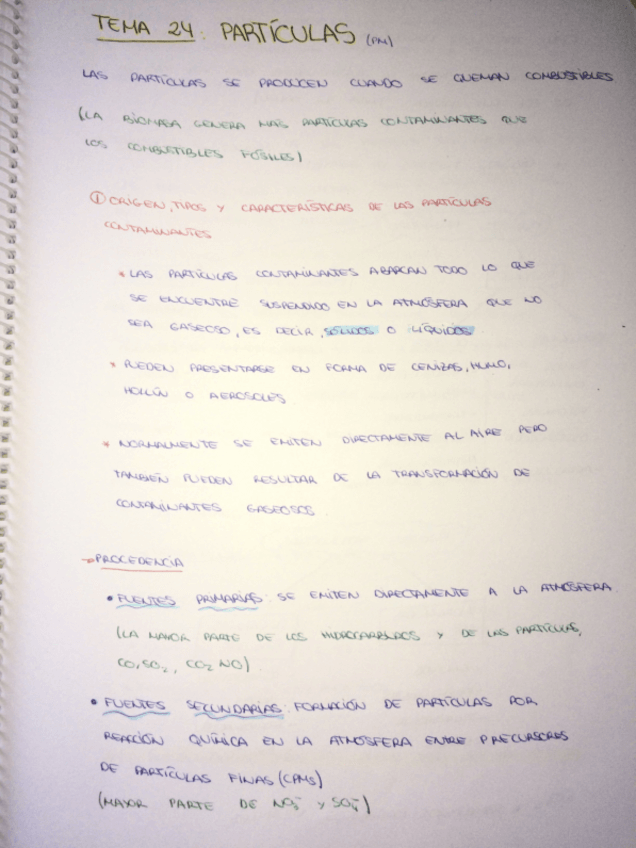 TEMA 24: PARTÍCULAS (PM)
LAS PARTÍCULAS SE PRODUCEN CUANDO SE QUEMAN COMBUSTIBLES
(LA BIOMASA GENERA MÁS PARTÍCULAS CONTAMINANTES QUE
LOS COMBUSTIBLES FÓSILES)
① ORIGEN, TIPOS Y CARACTERÍSTICAS DE LAS PARTÍCULAS
CONTAMINANTES
* LAS PARTÍCULAS CONTAMINANTES ABARCAN TODO LO QUE
SE ENCUENTRE SUSPENDIDO EN LA ATMÓSFERA QUE NO
SEA GASEOSO, ES DECIR, SÓLIDOS O LÍQUIDOS
* PUEDEN PRESENTARSE EN FORMA DE CENIZAS, HUMO,
HOLLÍN O AEROSOLES
* NORMALMENTE SE EMITEN DIRECTAMENTE AL AIRE PERO
TAMBIÉN PUEDEN RESULTAR DE LA TRANSFORMACIÓN DE
CONTAMINANTES GASEOSOS
→PROCEDENCIA
• FUENTES PRIMARIAS: SE EMITEN DIRECTAMENTE A LA ATMÓSFERA
(LA MAYOR PARTE DE LOS HIDROCARBUROS Y DE LAS PARTÍCULAS,
CO, SO₂, CO₂ NO)
• FUENTES SECUNDARIAS: FORMACIÓN DE PARTÍCULAS POR
REACCIÓN QUÍMICA EN LA ATMÓSFERA ENTRE PRECURSORES
DE PARTÍCULAS FINAS (CPMS)
(MAYOR PARTE DE NO₃⁻ Y SO₄⁻)